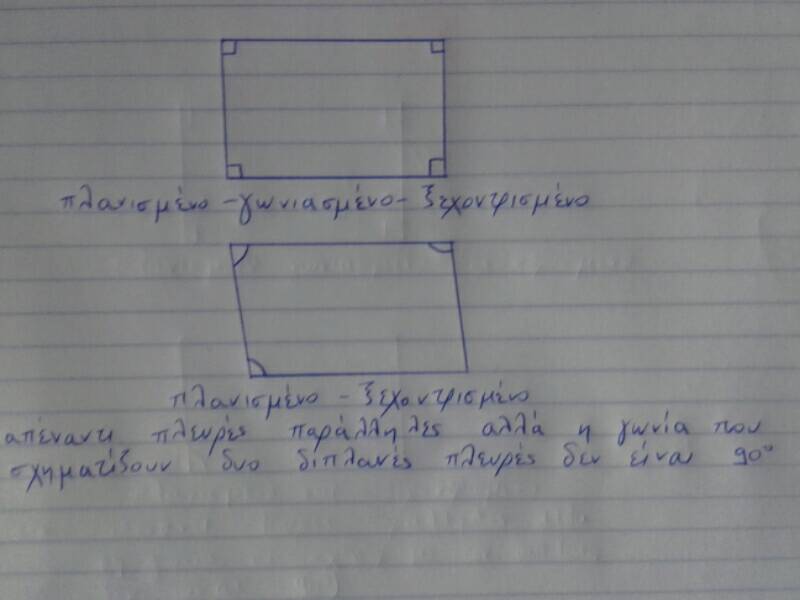 πλανισμένο - γωνιασμένο - ξεχοντρισμένο
πλανισμένο - ξεχοντρισμένο
απέναντι πλευρές παράλληλες αλλά η γωνία που
σχηματίζουν δυο διπλανές πλευρές δεν είναι 90°